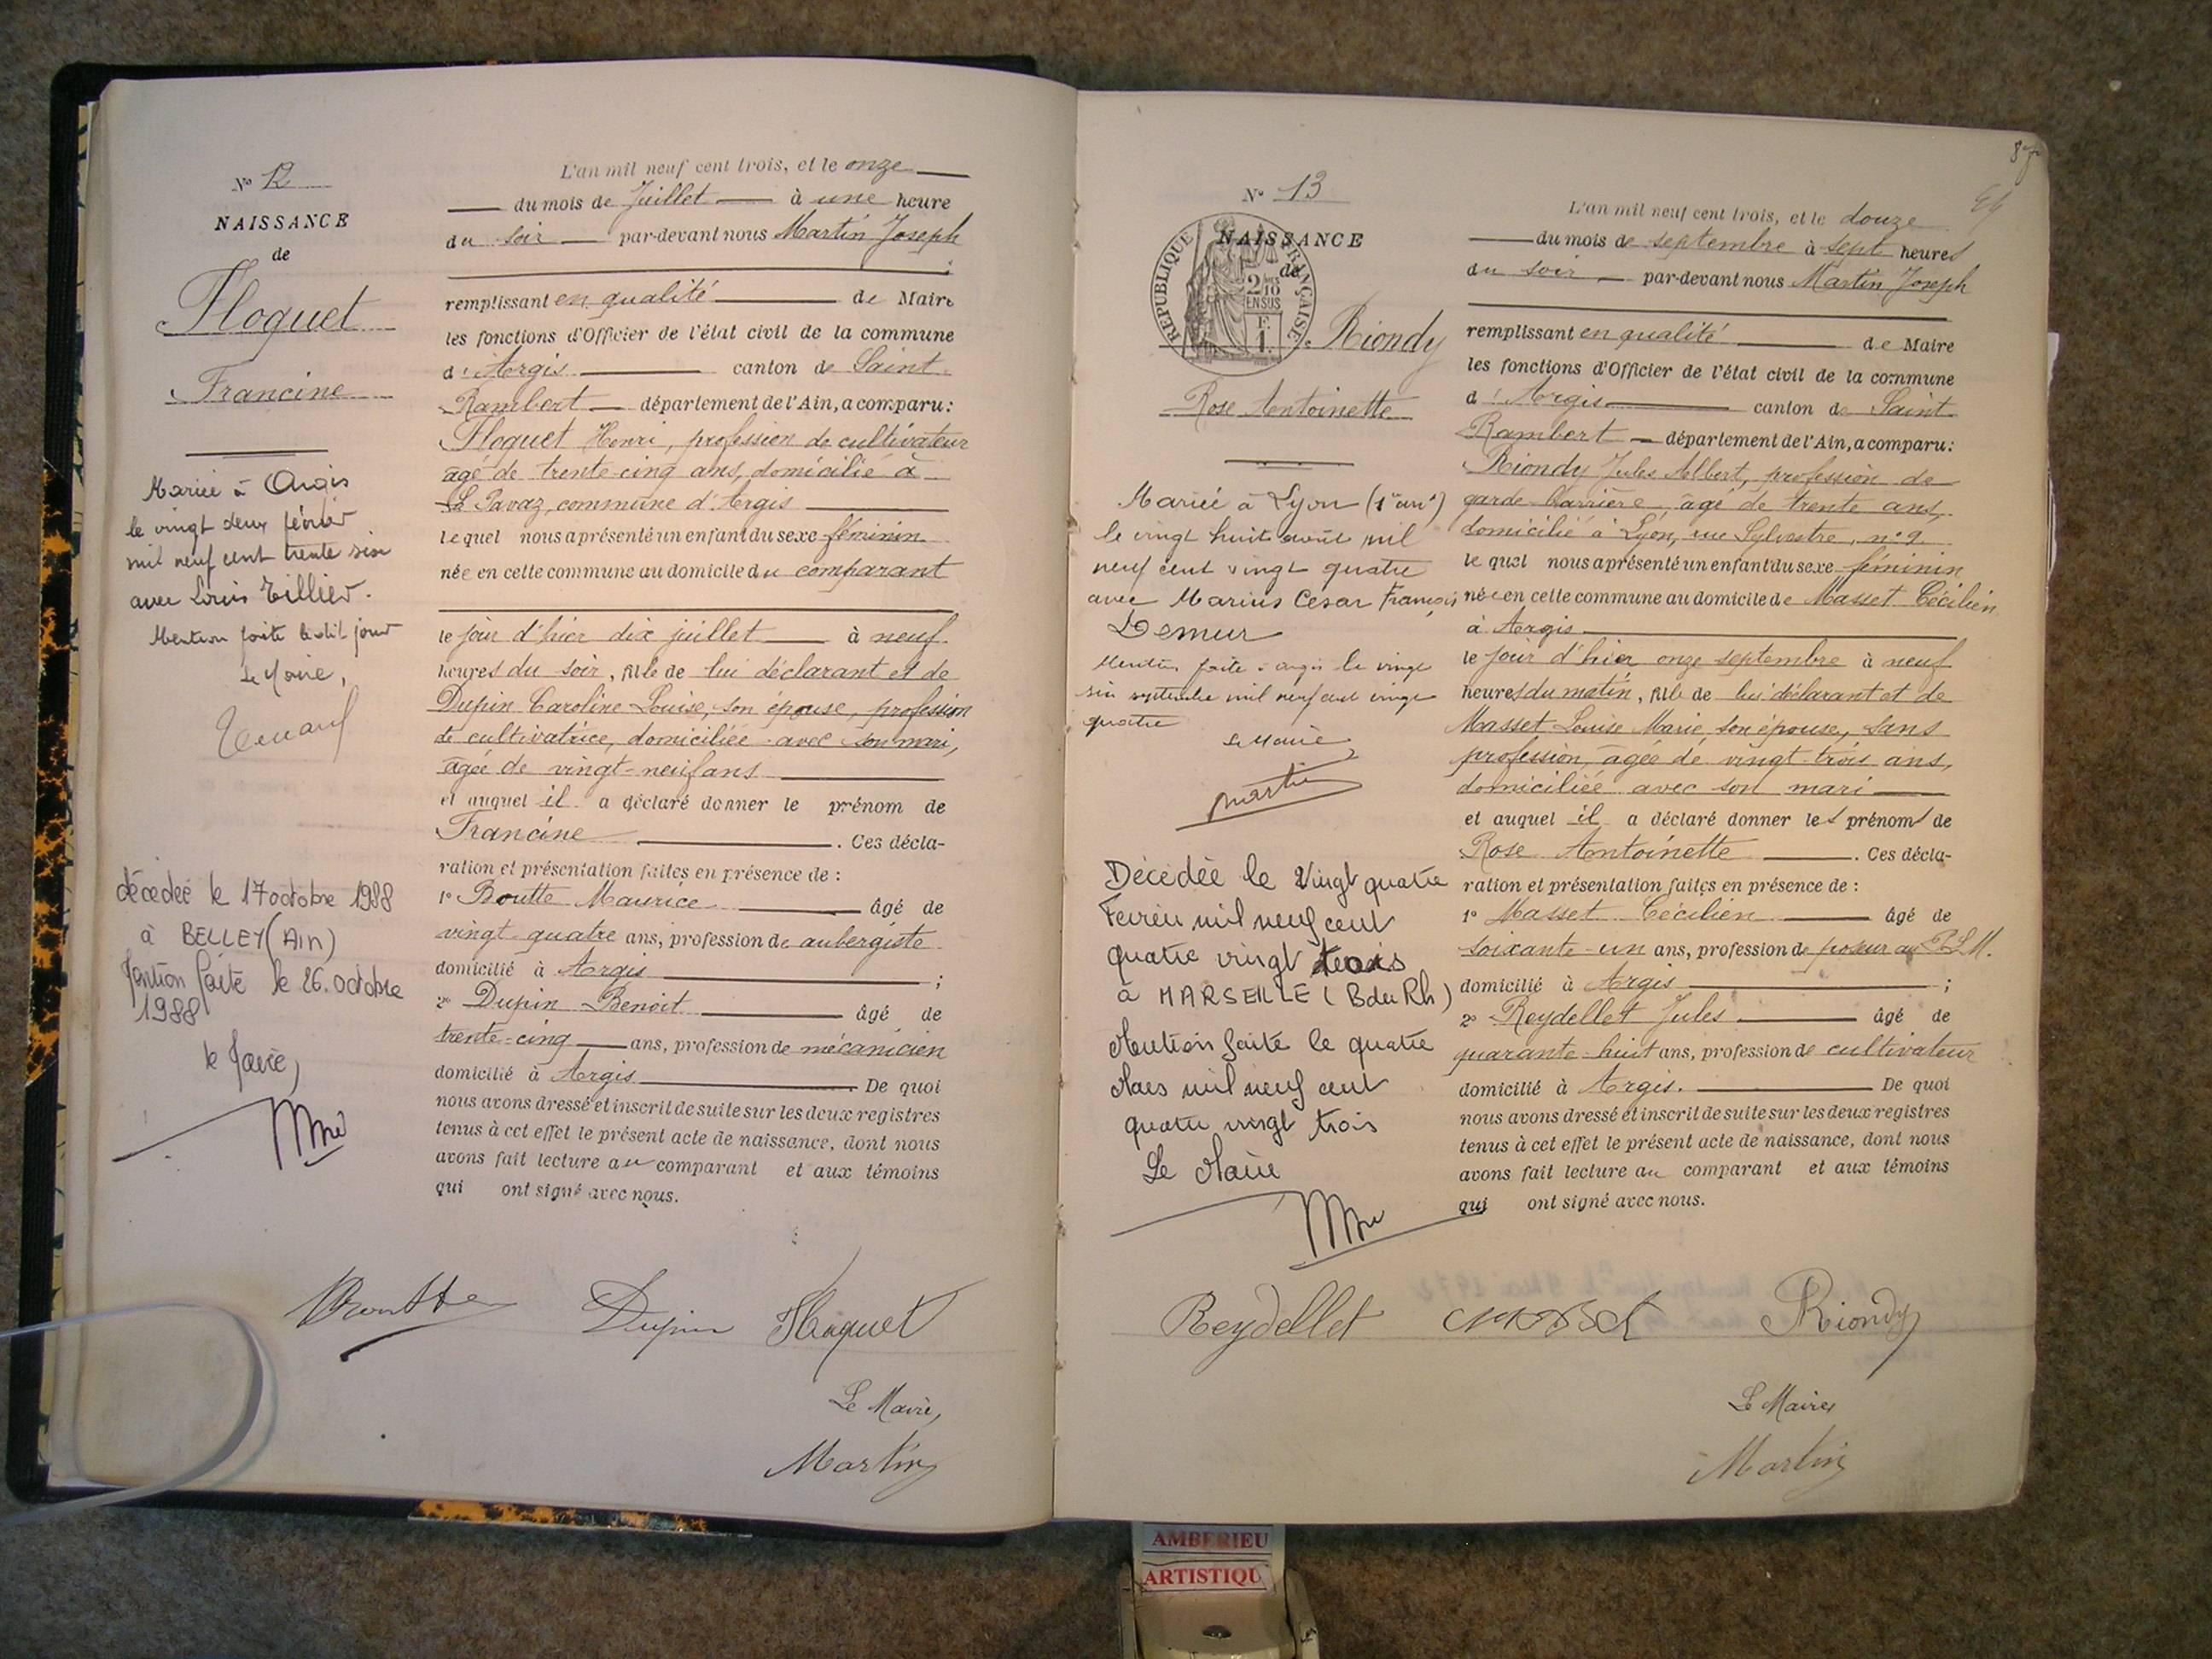 Nº 12
NAISSANCE
de
Floquet
Francine
Mariée à Argis
le vingt deux février
mil neuf cent trente six
avec Louis Tillier.
Mention faite le dit jour
Le Maire,
décédée le 17 octobre 1988
à BELLEY (Ain)
Mention faite le 26 octobre
1988
le Maire,
L'an mil neuf cent trois, et le onze
du mois de Juillet à une heure
du soir par-devant nous Martin Joseph
;
remplissant en qualité de Maire
les fonctions d'Officier de l'état civil de la commune
d'Argis canton de Saint
Rambert département de l'Ain, a comparu:
Floquet Henri, profession de cultivateur
âgé de trente-cinq ans, domicilié à
La Pavaz, commune d'Argis
lequel nous a présenté un enfant du sexe féminin
née en cette commune au domicile du comparant
le jour d'hier dix juillet à neuf
heures du soir, fille de lui déclarant et de
Dupin Caroline Louise, son épouse, profession
de cultivatrice, domiciliée avec son mari,
âgée de vingt-neuf ans
et auquel il a déclaré donner le prénom de
Francine . Ces décla-
ration et présentation faites en présence de :
1º Boutte Maurice âgé de
vingt-quatre ans, profession de aubergiste
domicilié à Argis ;
2º Dupin Benoit âgé de
trente-cinq ans, profession de mécanicien
domicilié à Argis . De quoi
nous avons dressé et inscrit de suite sur les deux registres
tenus à cet effet le présent acte de naissance, dont nous
avons fait lecture au comparant et aux témoins
qui ont signé avec nous.
Boutte Dupin Floquet
Le Maire,
Martin
87
Nº 13
NAISSANCE
de
REPUBLIQUE FRANÇAISE
2/10
EN SUS
F.
1.
Riondy
Rose Antoinette
Mariée à Lyon (1er arrt)
le vingt huit août mil
neuf cent vingt quatre
avec Marius Cesar François
Demur
Mention faite à Argis le vingt
six septembre mil neuf cent vingt
quatre
Le Maire
Martin
Décédée le Vingt quatre
Fevrier mil neuf cent
quatre vingt trois
à MARSEILLE (B du Rh)
Mention faite le quatre
Mars mil neuf cent
quatre vingt trois
Le Maire
L'an mil neuf cent trois, et le douze
du mois de septembre à sept heures
du soir par-devant nous Martin Joseph
remplissant en qualité de Maire
les fonctions d'Officier de l'état civil de la commune
d'Argis canton de Saint
Rambert département de l'Ain, a comparu:
Riondy Jules Albert, profession de
garde-barrière, âgé de trente ans,
domicilié à Lyon, rue Sylvestre, nº 9
lequel nous a présenté un enfant du sexe féminin
née en cette commune au domicile de Masset Cécilien
à Argis
le jour d'hier onze septembre à neuf
heures du matin, fille de lui déclarant et de
Masset Louise Marie, son épouse, sans
profession, âgée de vingt-trois ans,
domiciliée avec son mari
et auquel il a déclaré donner les prénoms de
Rose Antoinette . Ces décla-
ration et présentation faites en présence de :
1º Masset Cécilien âgé de
soixante-un ans, profession de poseur au P.L.M.
domicilié à Argis ;
2º Reydellet Jules âgé de
quarante-huit ans, profession de cultivateur
domicilié à Argis. De quoi
nous avons dressé et inscrit de suite sur les deux registres
tenus à cet effet le présent acte de naissance, dont nous
avons fait lecture au comparant et aux témoins
qui ont signé avec nous.
Reydellet Masset Riondy
Le Maire
Martin
AMBERIEU
ARTISTIQU